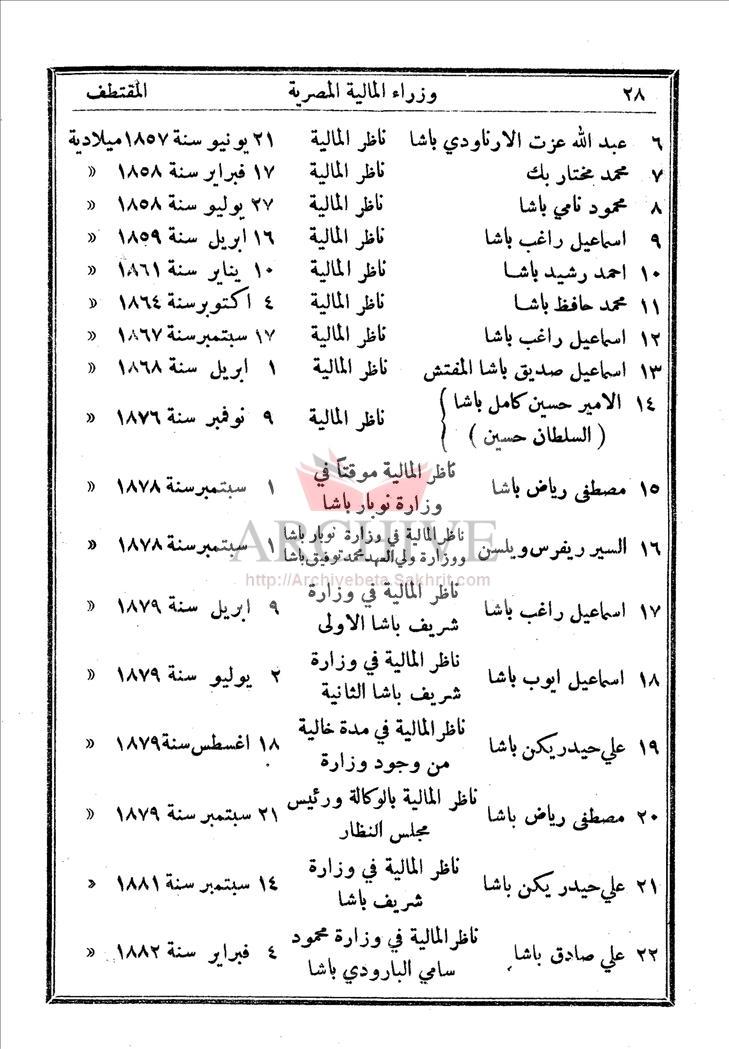 ٢٨ وزراء المالية المصرية المقتطف
٦ عبد الله عزت الارناودي باشا ناظر المالية ٢١ يونيو سنة ١٨٥٧ ميلادية
٧ محمد مختار بك ناظر المالية ١٧ فبراير سنة ١٨٥٨ »
٨ محمود نامي باشا ناظر المالية ٢٧ يوليو سنة ١٨٥٨ »
٩ اسماعيل راغب باشا ناظر المالية ١٦ ابريل سنة ١٨٥٩ »
١٠ احمد رشيد باشا ناظر المالية ١٠ يناير سنة ١٨٦١ »
١١ محمد حافظ باشا ناظر المالية ٤ اكتوبر سنة ١٨٦٤ »
١٢ اسماعيل راغب باشا ناظر المالية ١٧ سبتمبر سنة ١٨٦٧ »
١٣ اسماعيل صديق باشا المفتش ناظر المالية ١ ابريل سنة ١٨٦٨ »
١٤ الامير حسين كامل باشا
(السلطان حسين) } ناظر المالية ٩ نوفمبر سنة ١٨٧٦ »
١٥ مصطفى رياض باشا ناظر المالية موقتاً في
وزارة نوبار باشا ١ سبتمبر سنة ١٨٧٨ »
١٦ السير ريفرس ويلسن ناظر المالية في وزارة نوبار باشا
ووزارة ولي العهد محمد توفيق باشا ١ سبتمبر سنة ١٨٧٨ »
ARCHIVE
http://Archivebeta.Sakhrit.com
١٧ اسماعيل راغب باشا ناظر المالية في وزارة
شريف باشا الاولى ٩ ابريل سنة ١٨٧٩ »
١٨ اسماعيل ايوب باشا ناظر المالية في وزارة
شريف باشا الثانية ٢ يوليو سنة ١٨٧٩ »
١٩ علي حيدر يكن باشا ناظر المالية في مدة خالية
من وجود وزارة ١٨ اغسطس سنة ١٨٧٩ »
٢٠ مصطفى رياض باشا ناظر المالية بالوكالة ورئيس
مجلس النظار ٢١ سبتمبر سنة ١٨٧٩ »
٢١ علي حيدر يكن باشا ناظر المالية في وزارة
شريف باشا ١٤ سبتمبر سنة ١٨٨١ »
٢٢ علي صادق باشا ناظر المالية في وزارة محمود
سامي البارودي باشا ٤ فبراير سنة ١٨٨٢ »